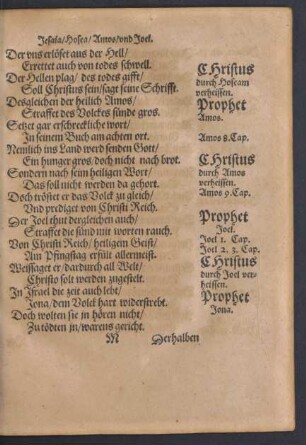 Jesaia/Hosea/Amos/vnd Joel.
Der vns erlöset aus der Hell/
Errettet auch von todes schwell.
Der Hellen plag/ des todes gifft/
Soll Christus sein/sagt seine Schrifft.
Desgleichen der heilich Amos/
Straffet des Volckes sünde gros.
Setzt gar erschreckliche wort/
In seinem Buch am achten ort.
Nemlich ins Land werd senden Gott/
Ein hunger gros/doch nicht nach brot.
Sondern nach seim heiligen Wort/
Das soll nicht werden da gehort.
Doch tröstet er das Volck zu gleich/
Vnd prediget von Christi Reich.
Der Joel thut dergleichen auch/
Straffet die sünd mit worten rauch.
Von Christi Reich/ heiligem Geist/
Am Pfingstag erfült allermeist.
Weissaget er/dardurch all Welt/
Christo solt werden zugestelt.
In Israel die zeit auch lebt/
Jona/dem Volck hart widerstrebt.
Doch wolten sie in hören nicht/
Zu tödten in/warens gericht.
M Derhalben
CHristus
durch Hoseam
verheissen.
Prophet
Amos.
Amos 8. Cap.
CHristus
durch Amos
verheissen.
Amos 9. Cap.
Prophet
Joel.
Joel 1. Cap.
Joel 2. 3. Cap.
CHristus
durch Joel ver-
heissen.
Prophet
Jona.